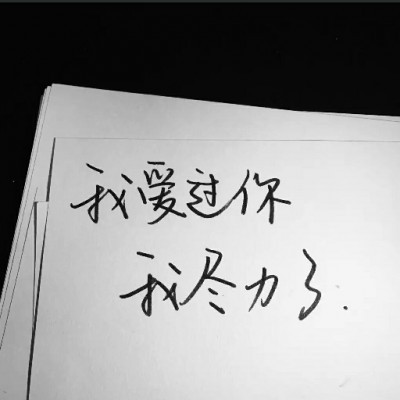 我爱过你
我尽力了.